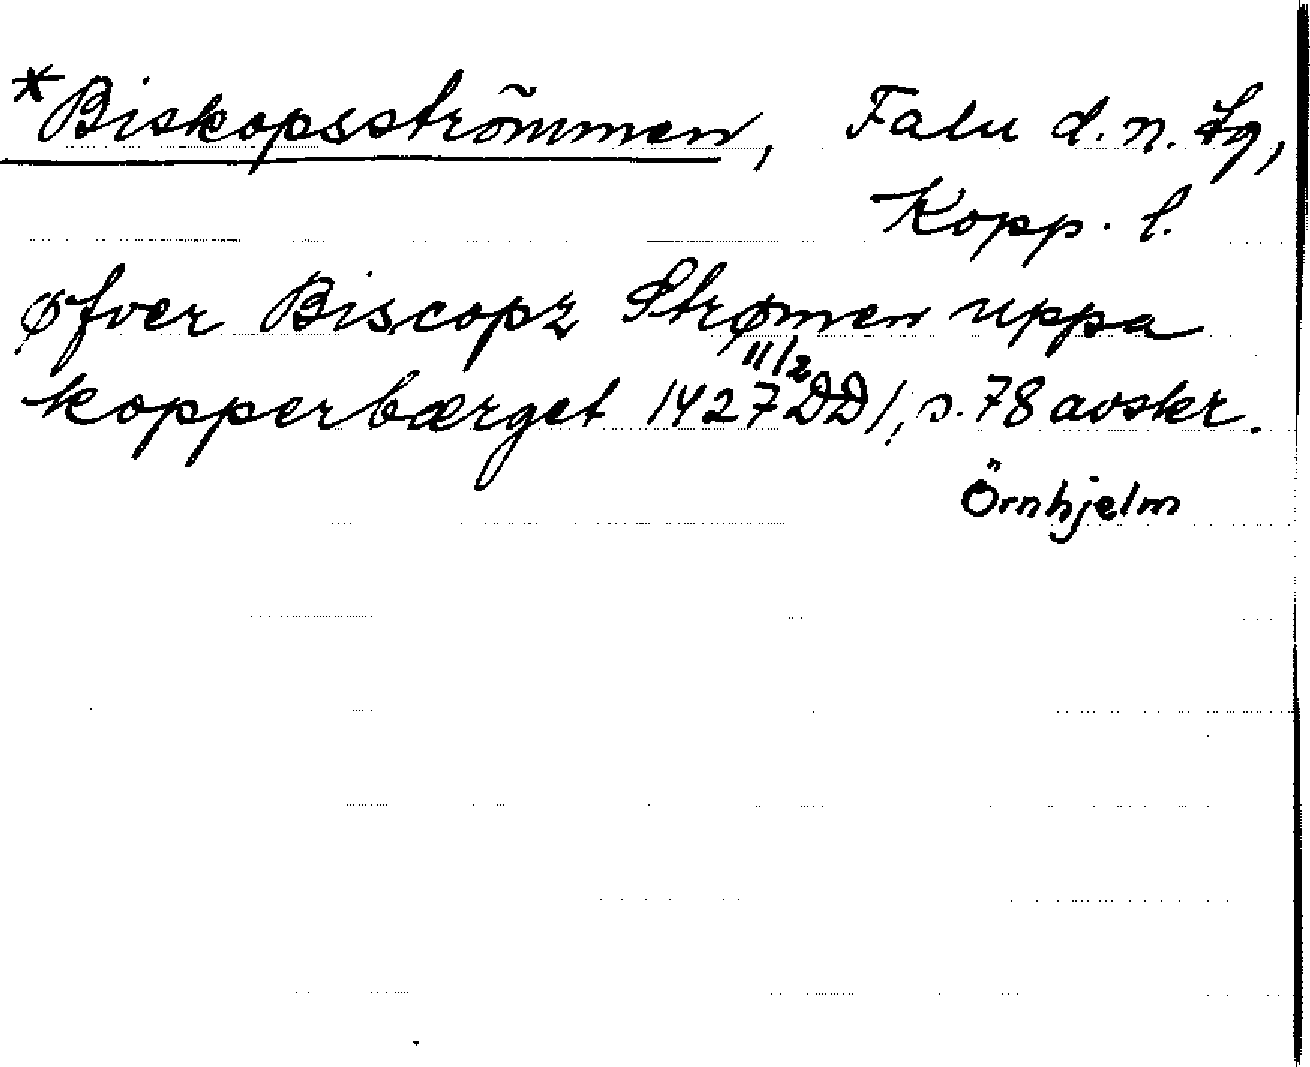 *Biskopsströmmen, Falu d. n. tg,
Kopp. l.
øfver Biscopz Strømen uppa
kopperbærget 1427 11/2 DD 1, s. 78 avskr.
Örnhjelm